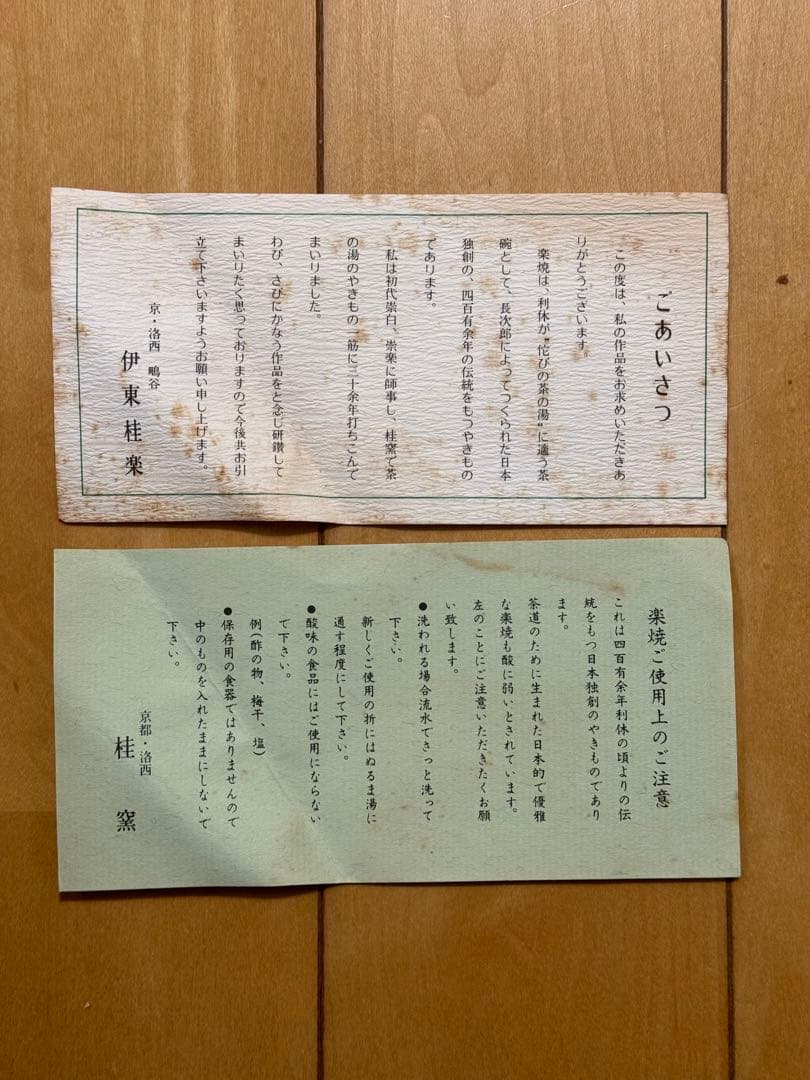 ごあいさつ
この度は、私の作品をお求めいただきあ
りがとうございます。
楽焼は、利休が"侘びの茶の湯"に適う茶
碗として、長次郎によってつくられた日本
独創の、四百有余年の伝統をもつやきもの
であります。
私は初代崇白、崇楽に師事し、桂窯で茶
の湯のやきもの一筋に三十余年打ちこんで
まいりました。
わび、さびにかなう作品をと念じ研鑽して
まいりたく思っておりますので今後共お引
立て下さいますようお願い申し上げます。
京・洛西 鴫谷
伊東桂楽
楽焼ご使用上のご注意
これは四百有余年利休の頃よりの伝
統をもつ日本独創のやきものであり
ます。
茶道のために生まれた日本的で優雅
な楽焼も酸に弱いとされています。
左のことにご注意いただきたくお願
い致します。
●洗われる場合流水でさっと洗って
下さい。
新しくご使用の折にはぬるま湯に
通す程度にして下さい。
●酸味の食品にはご使用にならない
で下さい。
例(酢の物、梅干、塩)
●保存用の食器ではありませんので
中のものを入れたままにしないで
下さい。
京都・洛西
桂窯